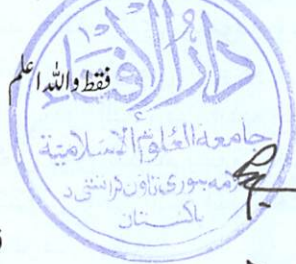 فقط واللہ اعلم
دار الافتاء
جامعة العلوم الإسلامية
علامہ بنوری ٹاؤن کراتشی ۵
باکستان